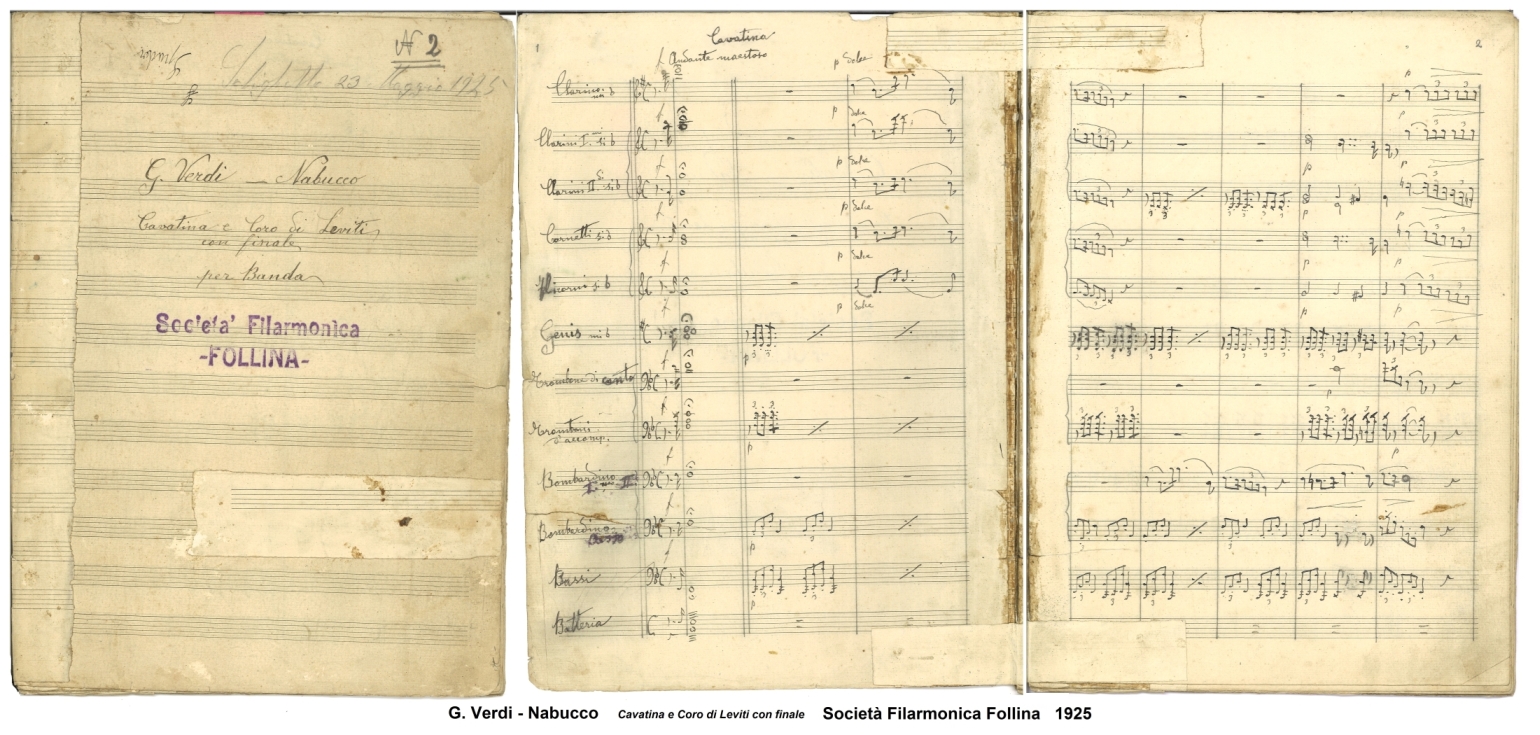 N 2
Solighetto 23 Maggio 1925
G. Verdi — Nabucco
Cavatina e Coro di Leviti
con finale
per Banda
Societa' Filarmonica
-FOLLINA-
1
Cavatina
f Andante maestoso
p Solee
Clarino mi b
Clarini I. si b
p Solee
Clarini II. si b
p Solee
Cornetti si b
p Solee
Flicorni si b
p Solee
Genis mi b
p Solee
Trombone di canto
Tromboni
d'accomp.
Bombardino
Bombardino
Basso
Bassi
Batteria
2
G. Verdi - Nabucco Cavatina e Coro di Leviti con finale Società Filarmonica Follina 1925